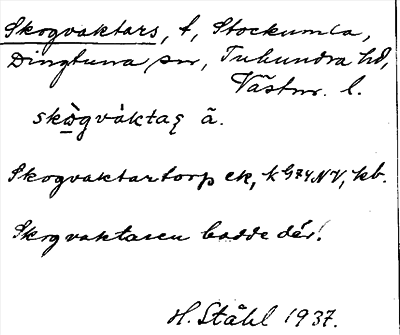 Skogvaktars, t, Stockumla,
Dingtuna sn, Tuhundra hd,
Västm. l.
skògvàktaş ã.
Skogvaktartorp ek, k G74 NV, kb.
Skogvaktaren bodde där!
H. Ståhl 1937.